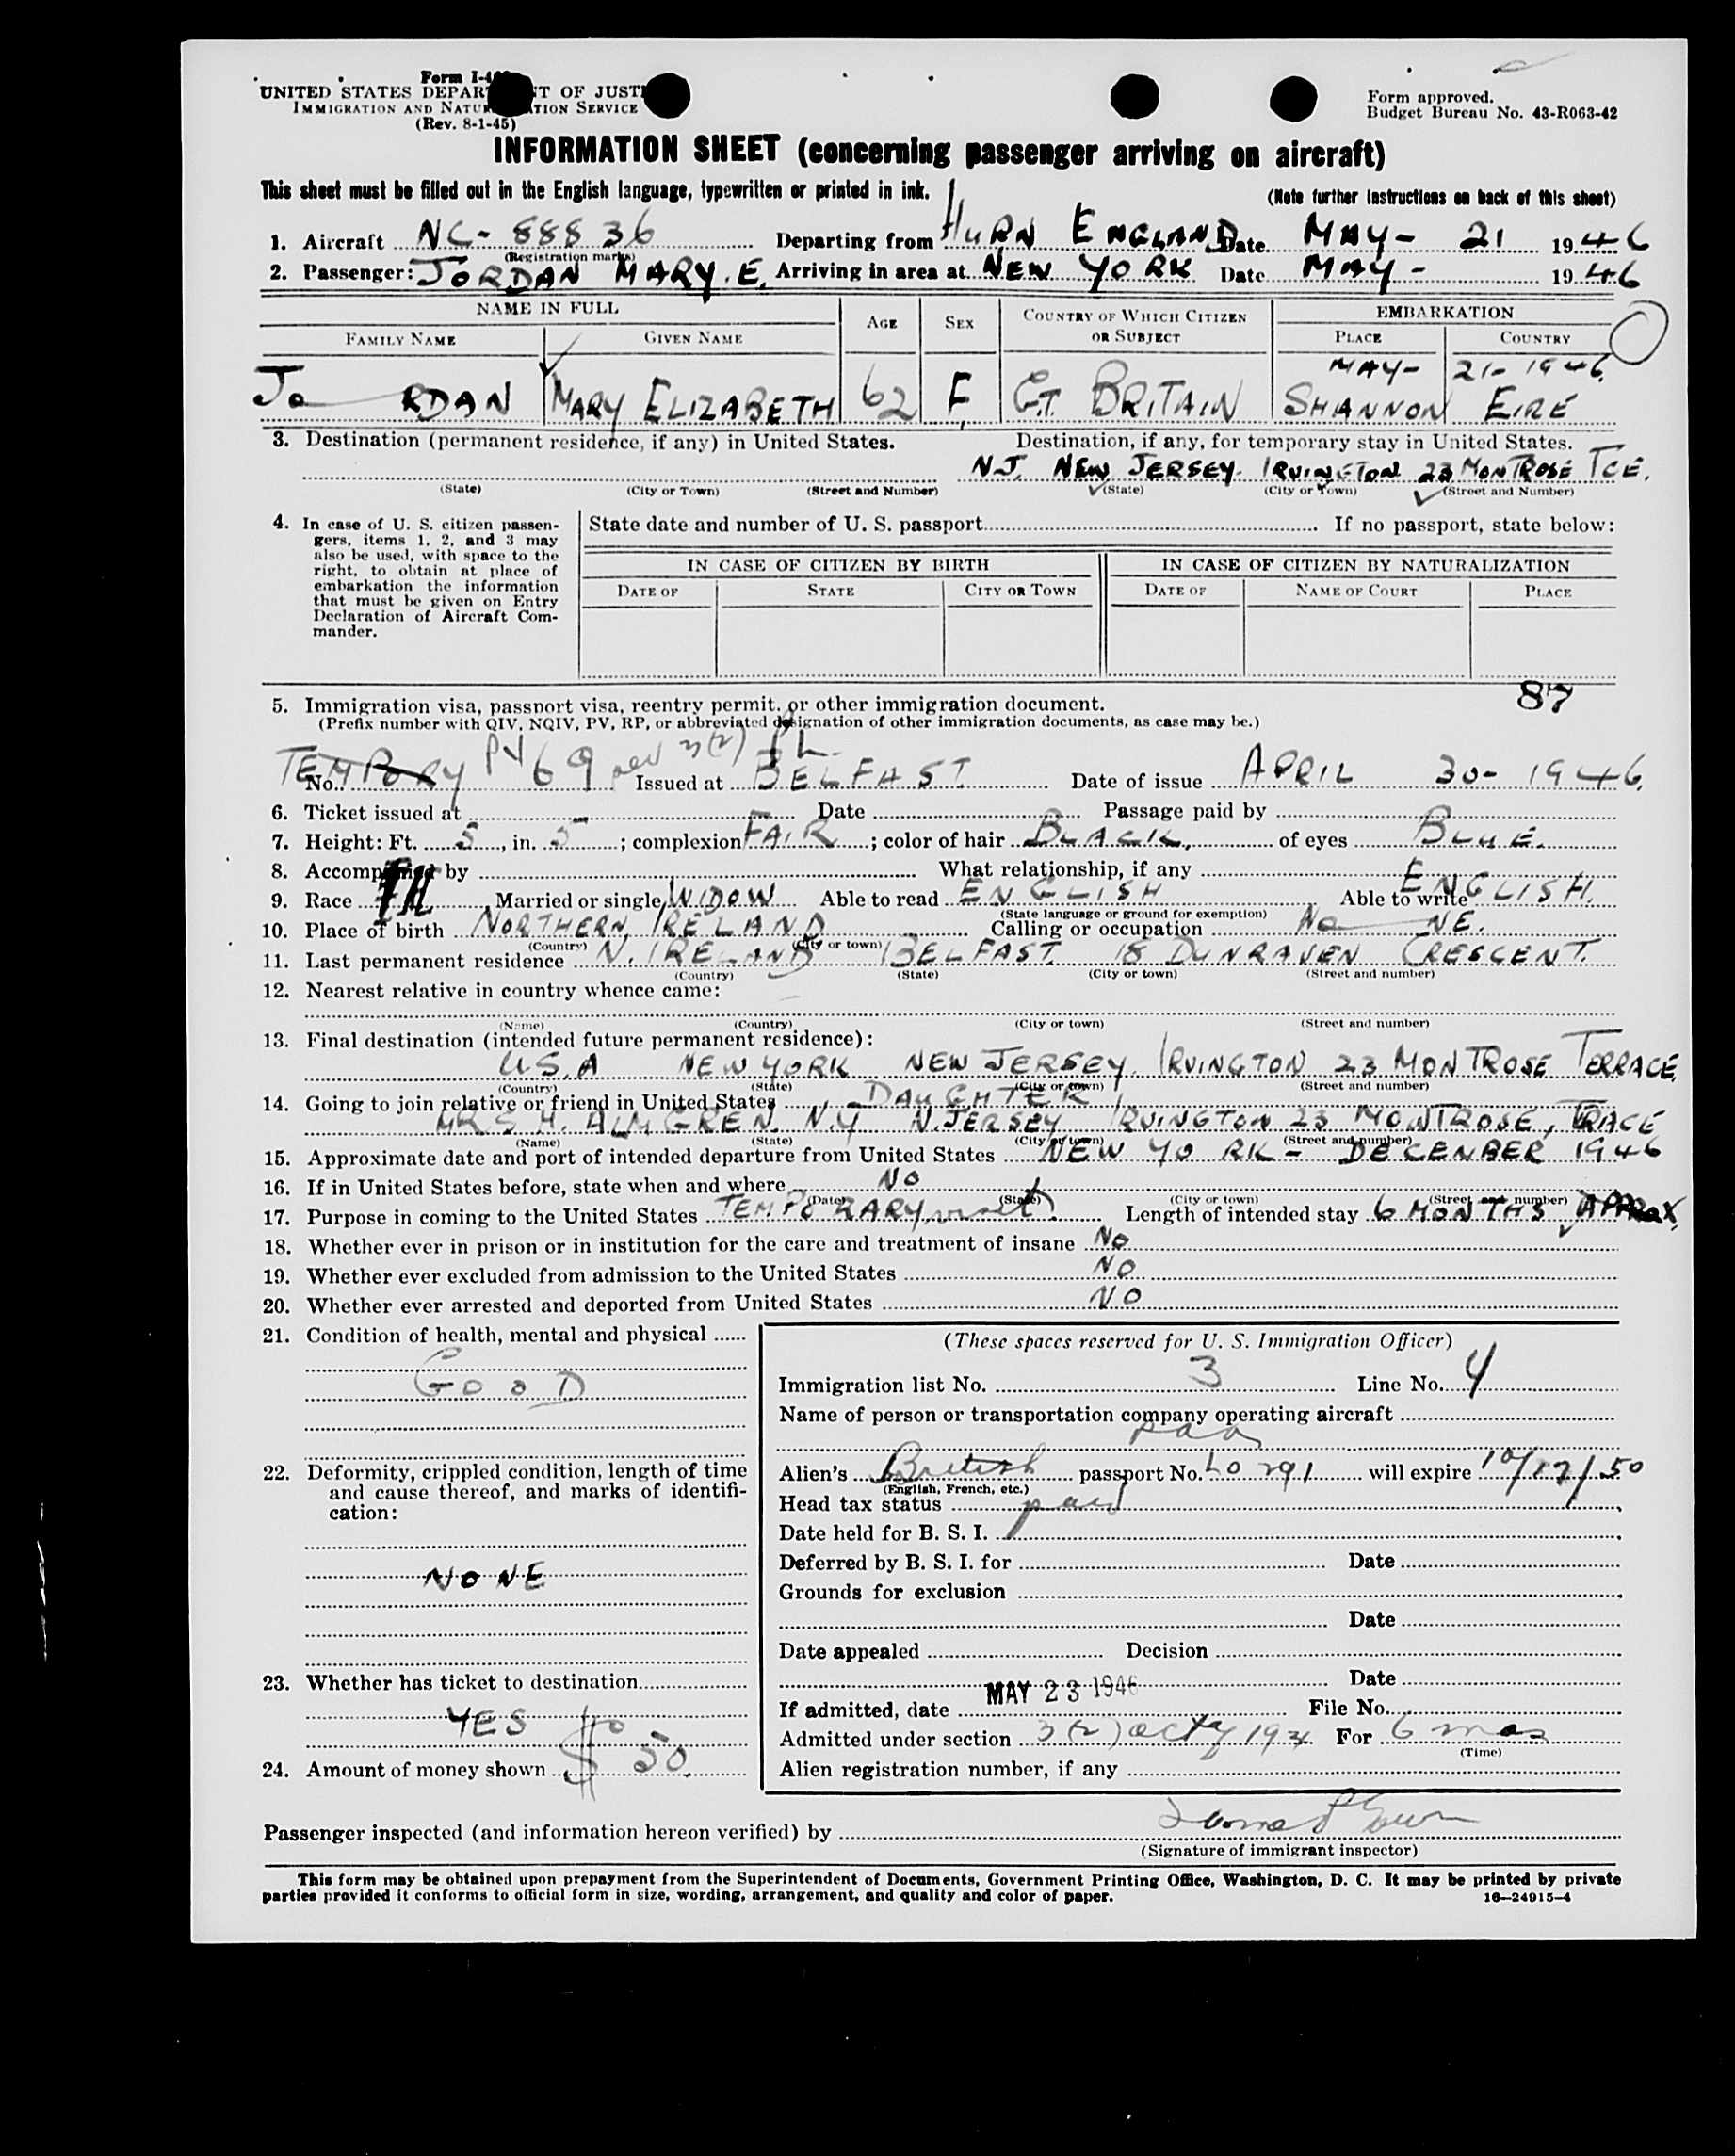 Form I-4
UNITED STATES DEPART T OF JUSTI
IMMIGRATION AND NATUR ATION SERVICE
(Rev. 8-1-45)
Form approved.
Budget Bureau No. 43-R063-42
INFORMATION SHEET (concerning passenger arriving on aircraft)
This sheet must be filled out in the English language, typewritten or printed in ink.
(Note further instructions on back of this sheet)
1. Aircraft NC-88836 Departing from HURN ENGLAND Date MAY- 21 1946
(Registration marks)
2. Passenger: JORDAN MARY.E. Arriving in area at NEW YORK Date MAY- 1946
NAME IN FULL AGE SEX COUNTRY OF WHICH CITIZEN OR SUBJECT EMBARKATION
FAMILY NAME GIVEN NAME PLACE COUNTRY
MAY- 21-1946.
JORDAN MARY ELIZABETH 62 F GT. BRITAIN SHANNON EIRE
3. Destination (permanent residence, if any) in United States. Destination, if any, for temporary stay in United States.
N.J. NEW JERSEY. IRVINGTON 23 MONTROSE TCE.
(State) (City or Town) (Street and Number) (State) (City or Town) (Street and Number)
4. In case of U. S. citizen passen-
gers, items 1, 2, and 3 may
also be used, with space to the
right, to obtain at place of
embarkation the information
that must be given on Entry
Declaration of Aircraft Com-
mander.
State date and number of U. S. passport If no passport, state below:
IN CASE OF CITIZEN BY BIRTH IN CASE OF CITIZEN BY NATURALIZATION
DATE OF STATE CITY OR TOWN DATE OF NAME OF COURT PLACE
87
5. Immigration visa, passport visa, reentry permit, or other immigration document.
(Prefix number with QIV, NQIV, PV, RP, or abbreviated designation of other immigration documents, as case may be.)
TEMPORY PV 69 3(2)
No. Issued at BELFAST. Date of issue APRIL 30-1946.
6. Ticket issued at Date Passage paid by
7. Height: Ft. 5, in. 5; complexion FAIR; color of hair BLACK, of eyes BLUE.
8. Accompanied by What relationship, if any
9. Race Married or single WIDOW Able to read ENGLISH Able to write ENGLISH.
(State language or ground for exemption)
10. Place of birth NORTHERN IRELAND Calling or occupation NONE.
(Country) (City or town)
11. Last permanent residence N. IRELAND BELFAST. 18 DUNRAVEN CRESCENT.
(Country) (State) (City or town) (Street and number)
12. Nearest relative in country whence came:
(Name) (Country) (City or town) (Street and number)
13. Final destination (intended future permanent residence):
U.S.A NEW YORK NEW JERSEY. IRVINGTON 23 MONTROSE TERRACE.
(Country) (State) (City or town) (Street and number)
14. Going to join relative or friend in United States DAUGHTER
MRS H. ALMGREN. N.Y N.JERSEY IRVINGTON 23 MONTROSE, TRACE
(Name) (State) (City or town) (Street and number)
15. Approximate date and port of intended departure from United States NEW YORK - DECENBER 1946
16. If in United States before, state when and where NO
(Date) (State) (City or town) (Street and number)
17. Purpose in coming to the United States TEMPORARY visit. Length of intended stay 6 MONTHS APPROX.
18. Whether ever in prison or in institution for the care and treatment of insane NO
19. Whether ever excluded from admission to the United States NO
20. Whether ever arrested and deported from United States NO
21. Condition of health, mental and physical
GOOD
22. Deformity, crippled condition, length of time
and cause thereof, and marks of identifi-
cation:
NONE
23. Whether has ticket to destination
YES
24. Amount of money shown $ 50.
(These spaces reserved for U. S. Immigration Officer)
Immigration list No. 3 Line No. 4
Name of person or transportation company operating aircraft
paa
Alien's British passport No. L0291 will expire 10/17/50
(English, French, etc.)
Head tax status paid
Date held for B. S. I.
Deferred by B. S. I. for Date
Grounds for exclusion
Date
Date appealed Decision
Date
If admitted, date MAY 23 1946 File No.
Admitted under section 3(2) act of 1924 For 6 mos
(Time)
Alien registration number, if any
Passenger inspected (and information hereon verified) by
(Signature of immigrant inspector)
This form may be obtained upon prepayment from the Superintendent of Documents, Government Printing Office, Washington, D. C. It may be printed by private
parties provided it conforms to official form in size, wording, arrangement, and quality and color of paper.
16-24915-4